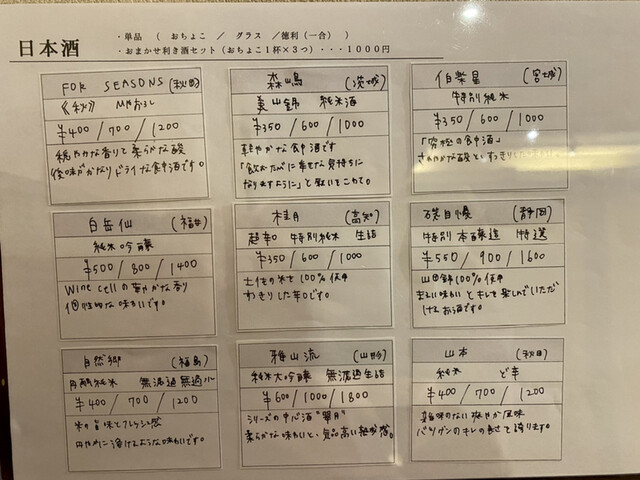 日本酒
・単品 ( おちょこ / グラス /徳利(一合) )
・おまかせ利き酒セット(おちょこ1杯×3つ)・・・1000円
FOR SEASONS (秋田)
《秋》 ひやおろし
¥400 / 700 / 1200
穏やかな香りで柔らかな酸
後味がかなりドライな食中酒です。
森嶋 (茨城)
美山錦 純米酒
¥350 / 600 / 1000
軽やかな食中酒です
「飲むたびに幸せな気持ちに
なりますように」と願いをこめて。
伯楽星 (宮城)
特別純米
¥350 / 600 / 1000
「究極の食中酒」
さわやかな酸とすっきりした
白岳仙 (福井)
純米吟醸
¥500 / 800 / 1400
Wine cellの華やかな香り
個性的な味わいです。
桂月 (高知)
超辛口 特別純米 生詰
¥350 / 600 / 1000
土佐の米を100%使用
すっきりした辛口です。
磯自慢 (静岡)
特別本醸造 特選
¥550 / 900 / 1600
山田錦100%使用
まるい味わいとキレを楽しんでいただ
けるお酒です。
自然郷 (福島)
純米 無濾過
¥400 / 700 / 1200
米の旨味とフレッシュ感
円やかに溶けるような味わいです。
雅山流 (山形)
純米大吟醸 無濾過生詰
¥600 / 1000 / 1800
シリーズの中心酒"翠月"
柔らかな味わいと、気品高い
山本 (秋田)
純米 ど辛
¥400 / 700 / 1200
のない爽やか風味
バツグンのキレの良さで誇ります。